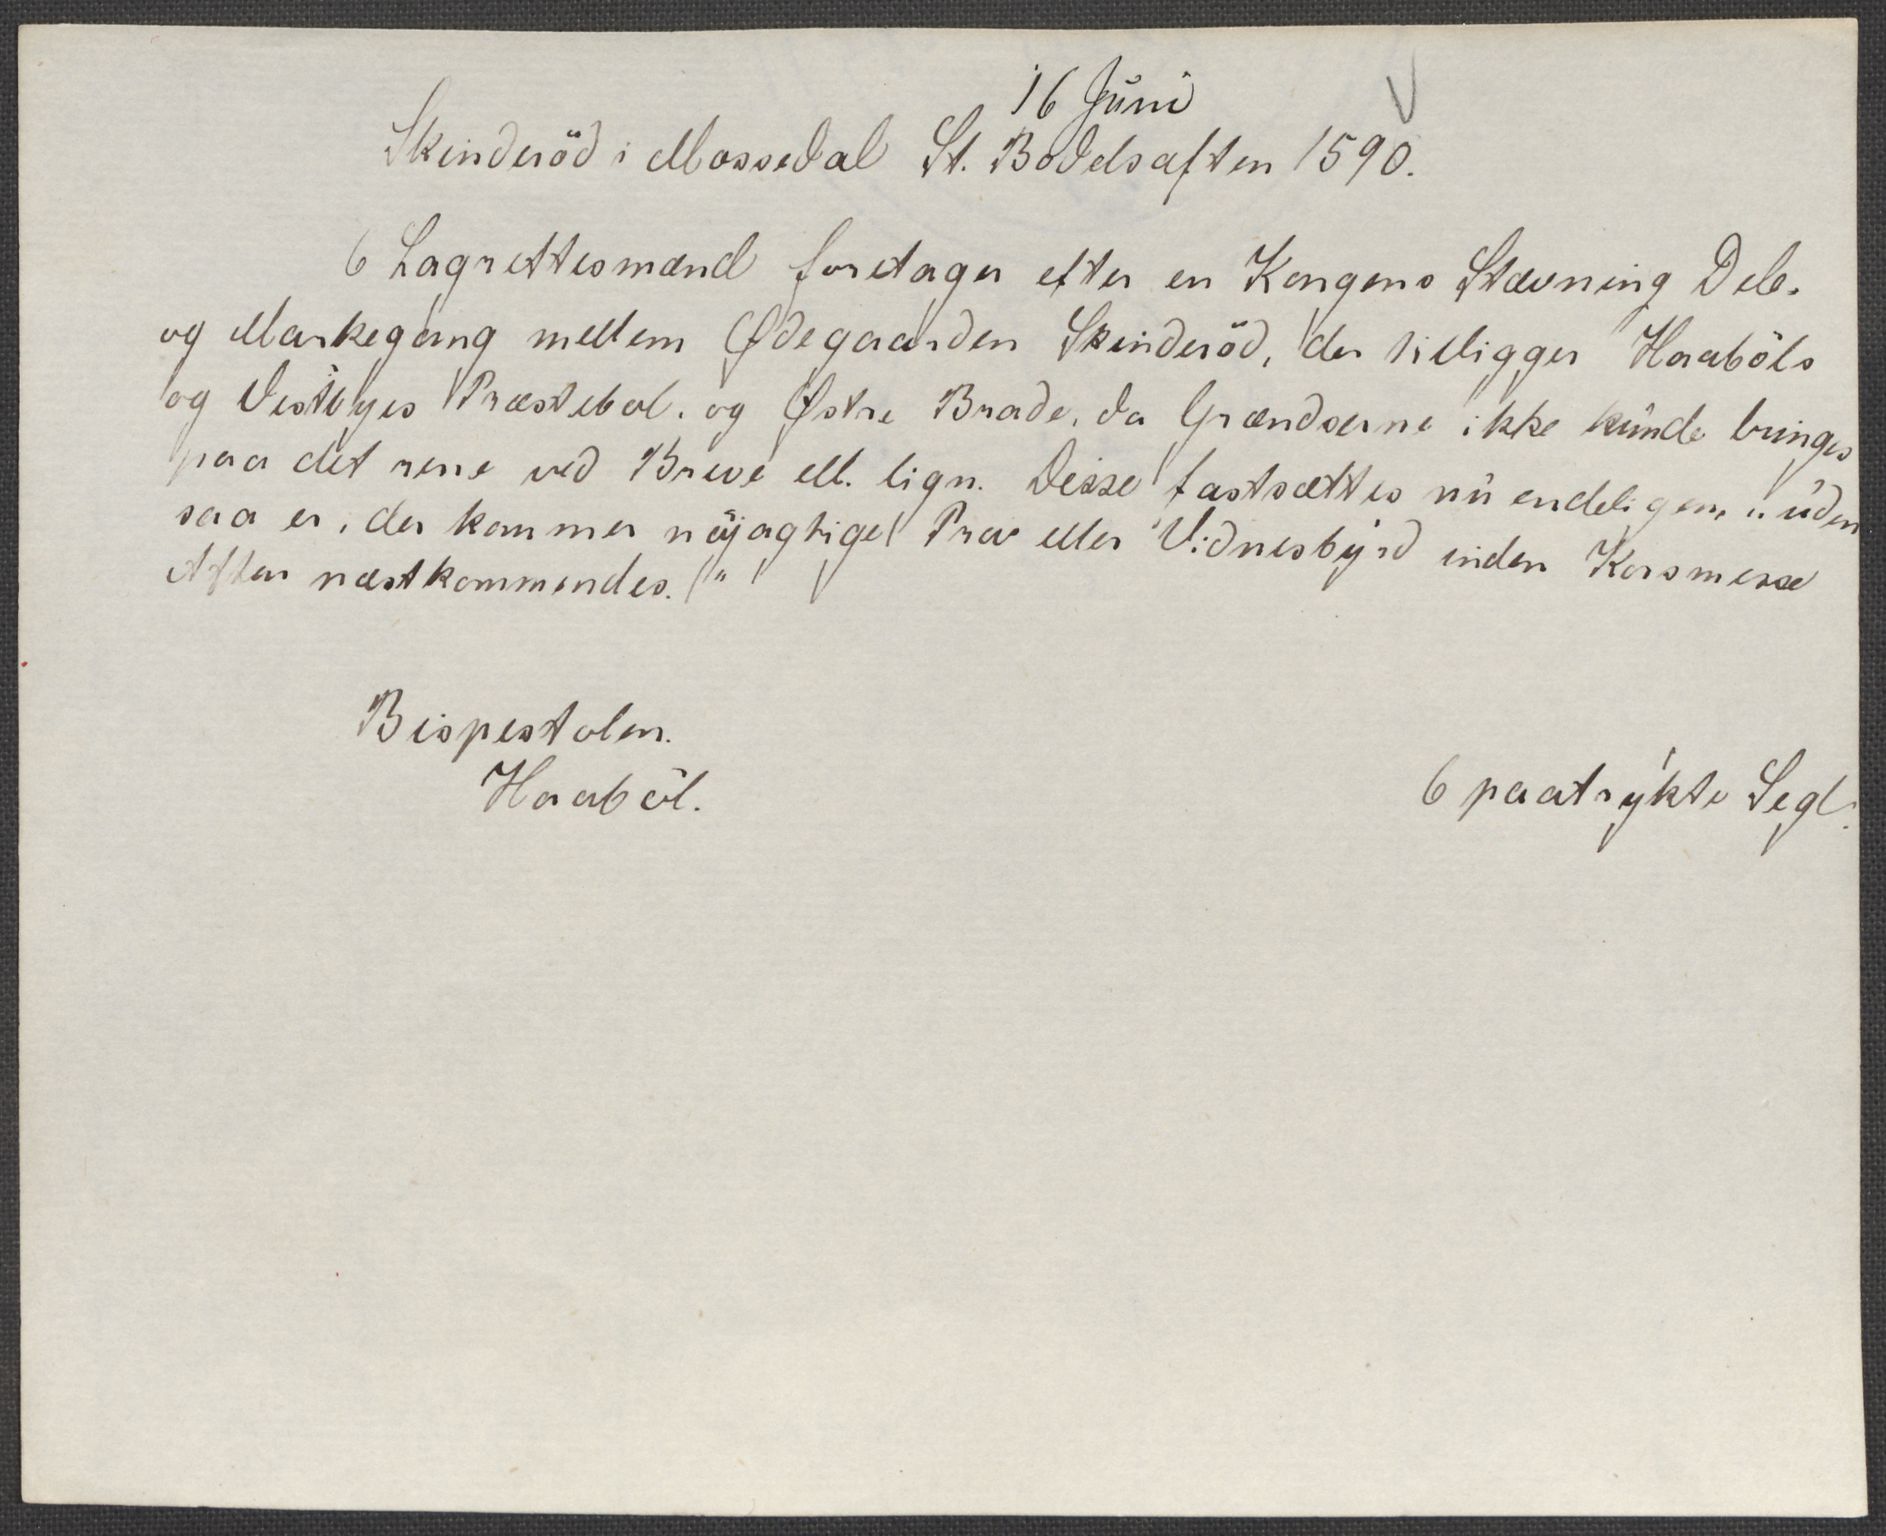 16 Juni
Skinderöd i Mossedal St. Bodelsaften 1590.
6 Lagrettesmænd foretager efter en Kongens Stævning Dele-
og Markegang mellem Ødegaarden Skinderöd, der tilligger Haaböls
og Vestbyes Præstebol. og Østre Brade, da Grændserne ikke kunde bringes
paa det rene ved Breve ell. lign. Disse fastsættes nu endeligen, "uden
saa er, der kommer nöjagtige Prov eller Vidnesbyrd inden Korsmesse
Aften næstkommendes."
Bispestolen.
Haaböl.
6 paatrykte Segl.